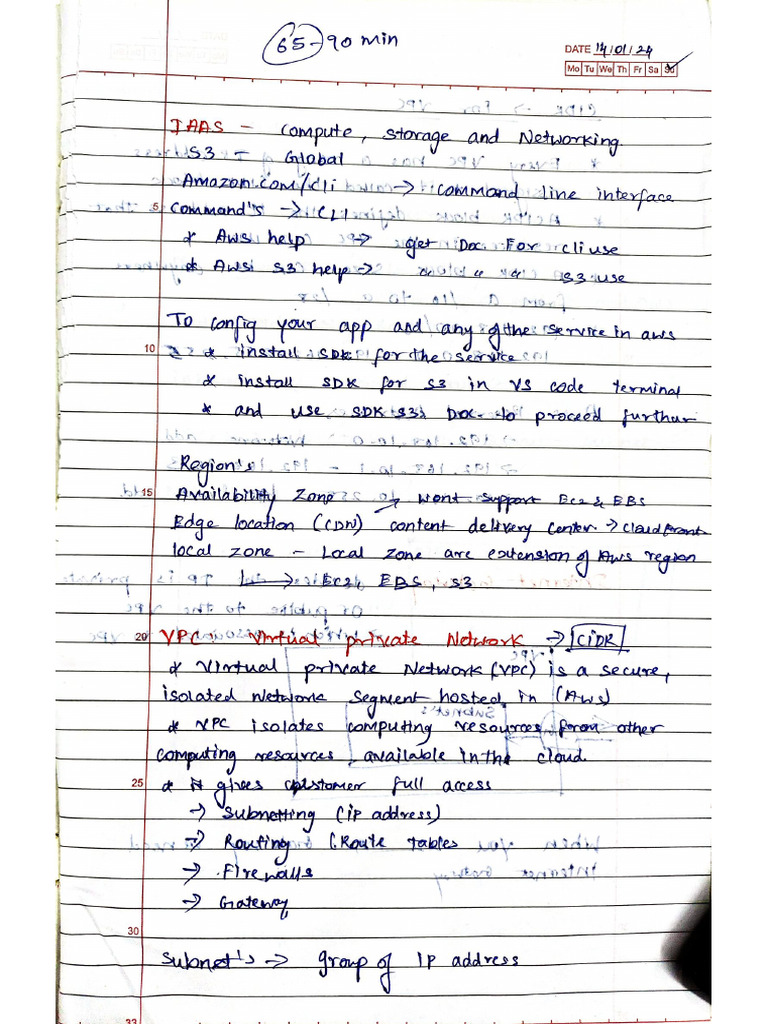 65-90 min
DATE 14/01/24
Mo Tu We Th Fr Sa Su
IAAS - Compute, Storage and Networking.
S3 - Global
Amazon.com/cli → command line interface
5
Command's → CLI
* Aws help → get Doc For cli use
* Awsi S3 help → " " " S3 use
To config your app and any of the service in aws
10
* install SDK for the service
* install SDK for S3 in VS code terminal
* and use SDK S3's Doc. to proceed furthur
Region's
15
Availability Zone → wont support Ec2 & EBS
Edge location (CDN) content delivery center. → Cloud front
local zone - Local zone are extension of Aws region
→ Ec2, EBS, S3
20
VPC: Virtual private Network → CIDR
* Virtual private Network (VPC) is a secure,
isolated Network Segment hosted in (Aws)
* VPC isolates computing resources from other
computing resources available in the cloud.
25
* It gives customer full access
→ Subnetting (ip address)
→ Routing (Route tables
→ Firewalls
→ Gateway
30
Subnet's → group of IP address
33